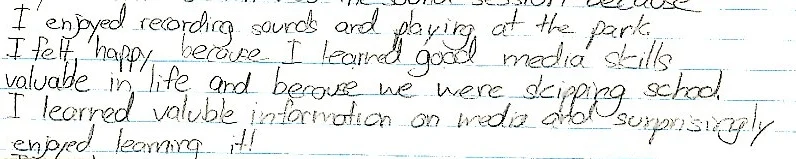 session because
I enjoyed recording sounds and playing at the park.
I felt happy because I learned good media skills
valuable in life and because we were skipping school.
I learned valuble information on media and surprisingly
enjoyed learning it!